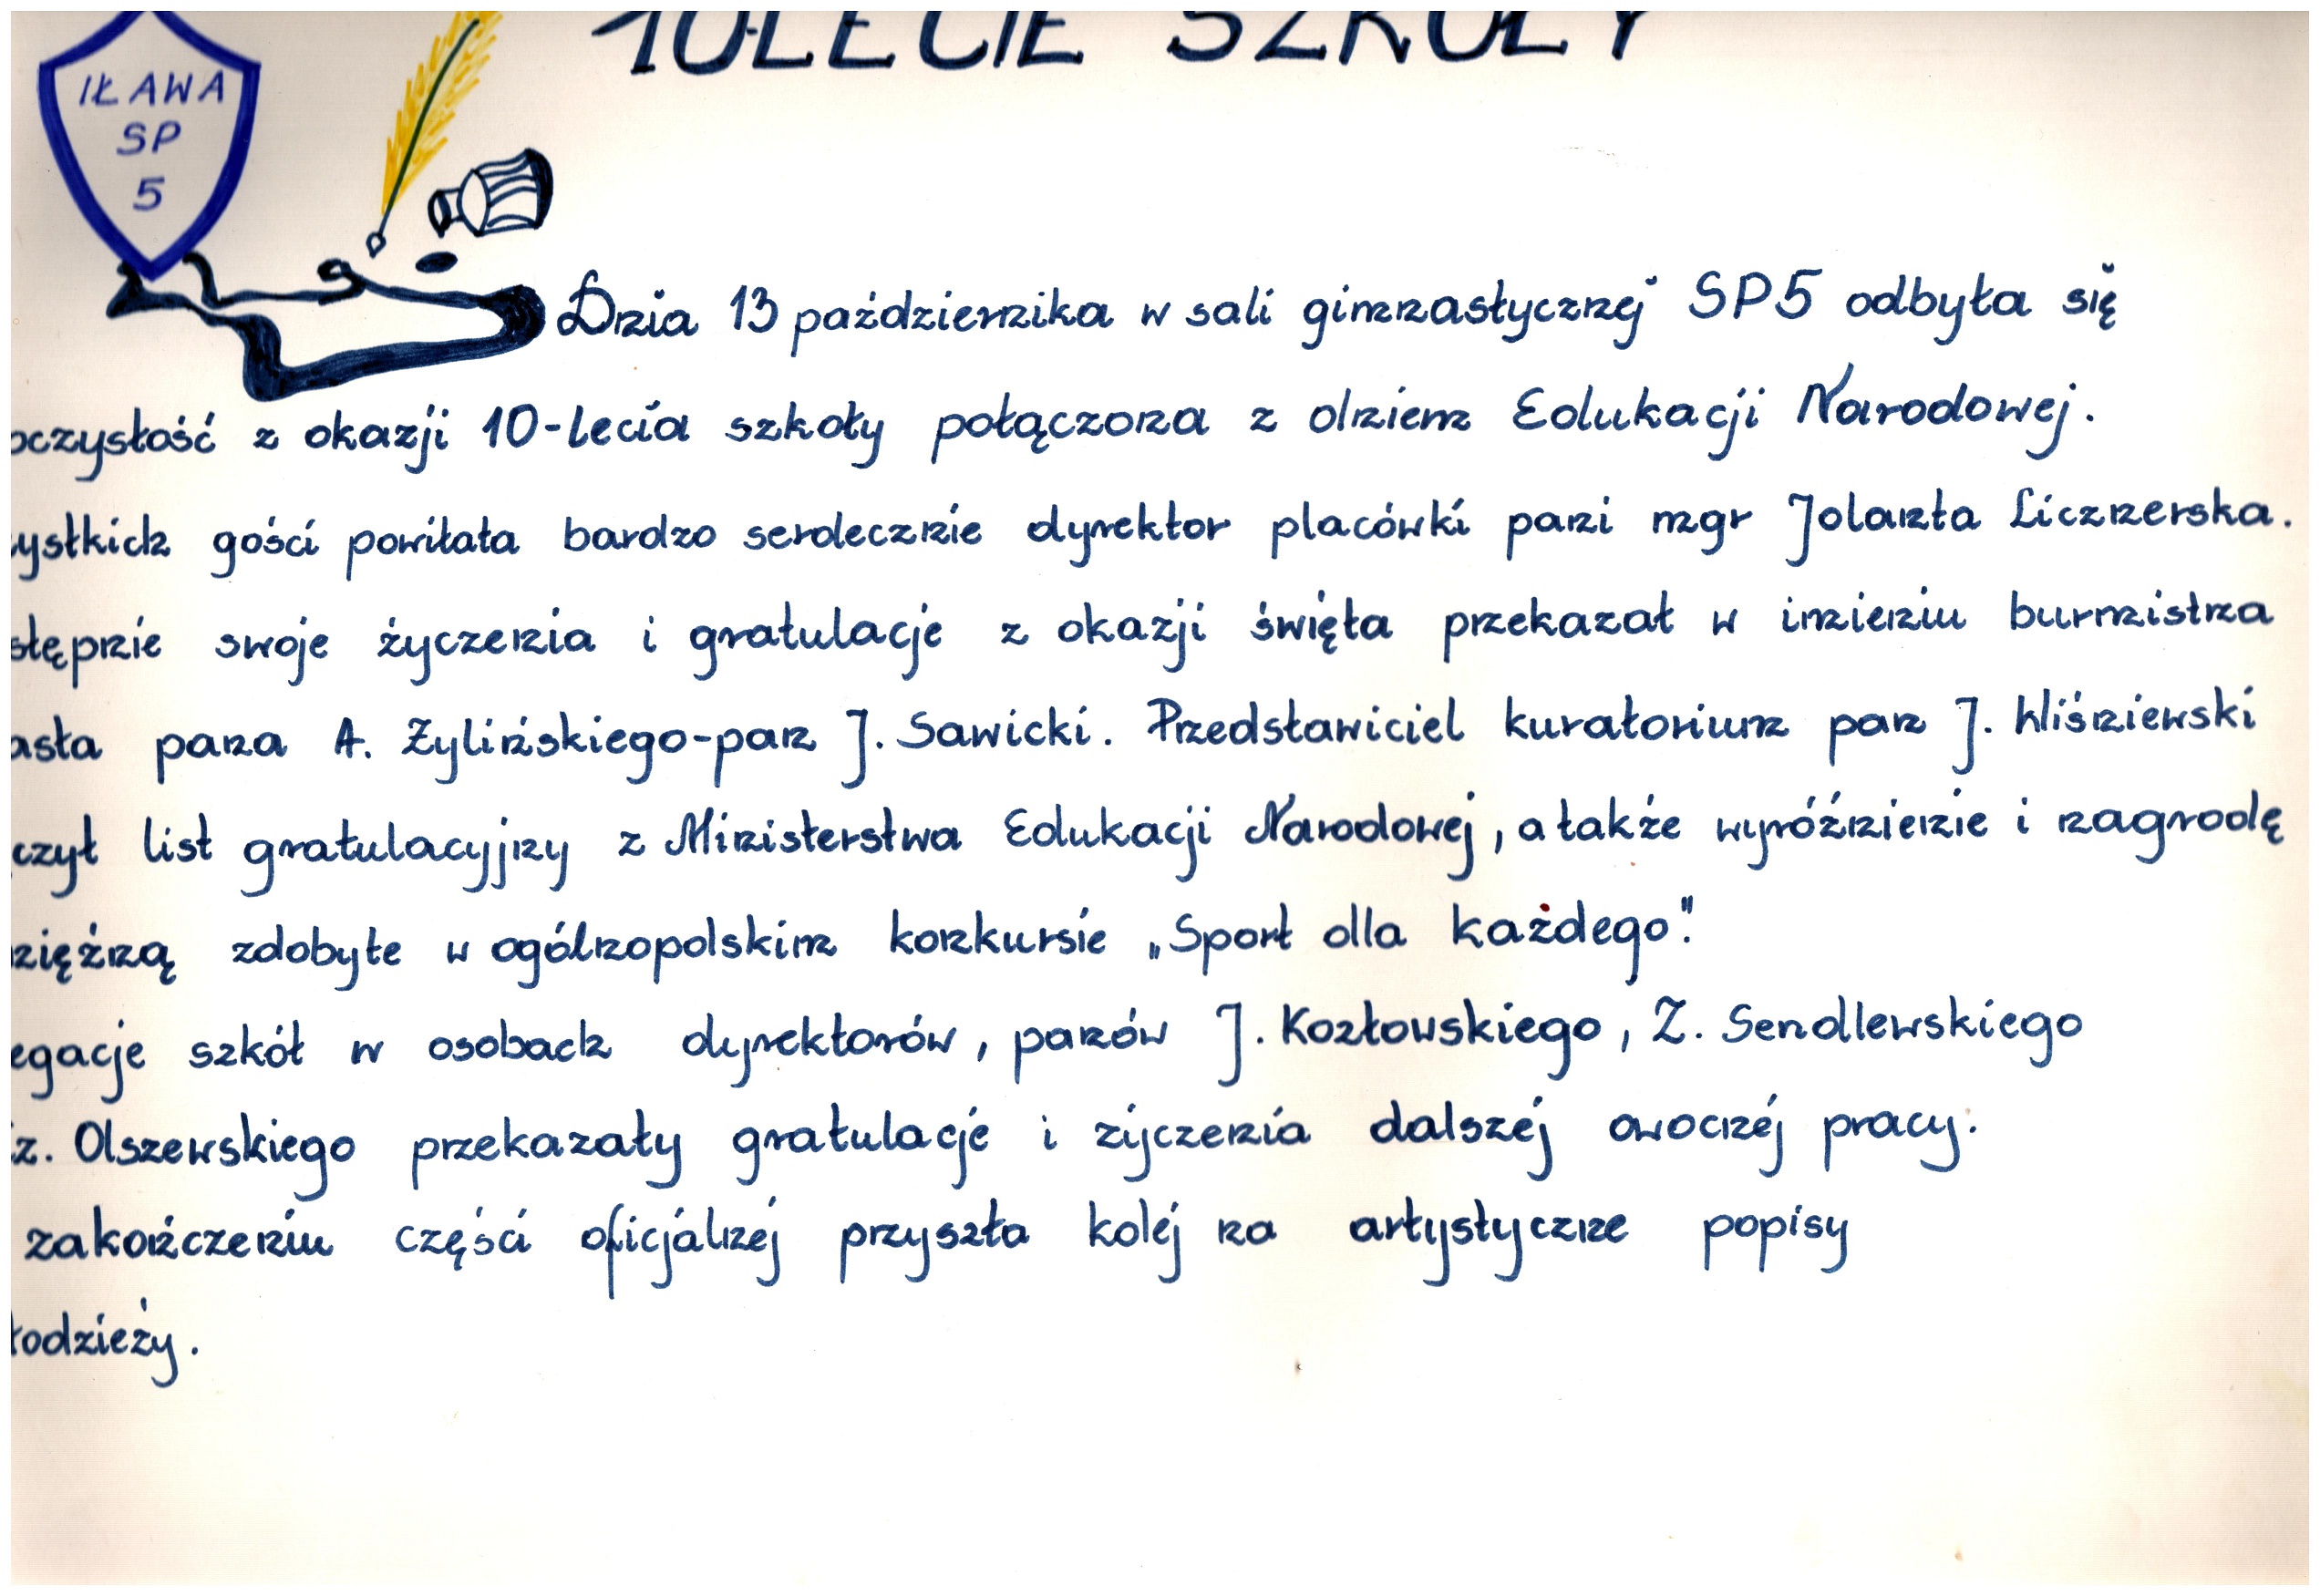 10-LECIE SZKOŁY
IŁAWA
SP
5
Dnia 13 października w sali gimnastycznej SP5 odbyła się
oczystość z okazji 10-lecia szkoły połączona z dniem Edukacji Narodowej.
ystkich gości powitała bardzo serdecznie dyrektor placówki pani mgr Jolanta Licznerska.
stępnie swoje życzenia i gratulacje z okazji święta przekazał w imieniu burmistrza
asta pana A. Żylińskiego-pan J. Sawicki. Przedstawiciel kuratorium pan J. Wiśniewski
czył list gratulacyjny z Ministerstwa Edukacji Narodowej, a także wyróżnienie i nagrodę
niężną zdobyte w ogólnopolskim konkursie „Sport dla każdego".
egacje szkół w osobach dyrektorów, panów J. Kozłowskiego, Z. Sendlewskiego
z. Olszewskiego przekazały gratulacje i życzenia dalszej owocnej pracy.
zakończeniu części oficjalnej przyszła kolej na artystyczne popisy
łodzieży.